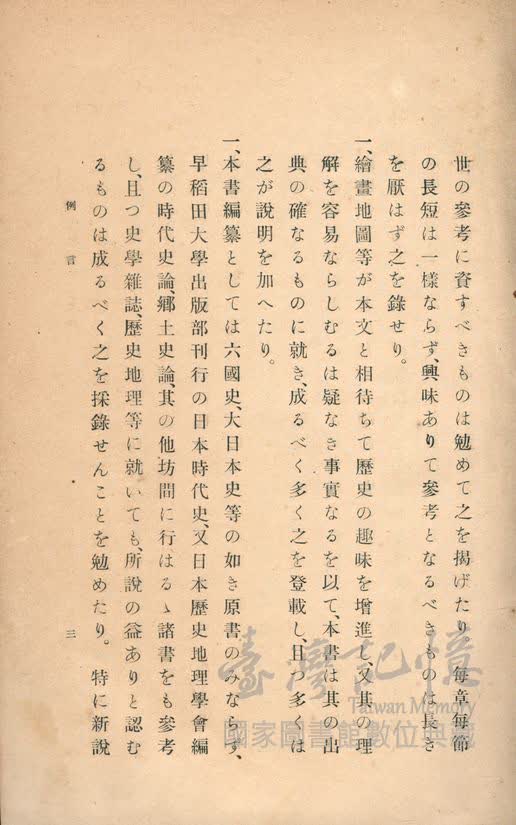 世の參考に資すべきものは勉めて之を揭げたり。每章每節
の長短は一樣ならず、興味ありて參考となるべきものは長き
を厭はず之を錄せり。
一、繪畫地圖等が本文と相待ちて歷史の趣味を增進し、又其の理
解を容易ならしむるは疑なき事實なるを以て、本書は其の出
典の確なるものに就き、成るべく多く之を登載し、且つ多くは
之が說明を加へたり。
一、本書編纂としては六國史、大日本史等の如き原書のみならず、
早稻田大學出版部刊行の日本時代史、又日本歷史地理學會編
纂の時代史論、鄕土史論、其の他坊間に行はるゝ諸書をも參考
し、且つ史學雜誌、歷史地理等に就いても、所說の益ありと認む
るものは成るべく之を採錄せんことを勉めたり。特に新說
例言
三
臺灣記憶
Taiwan Memory
國家圖書館數位典藏